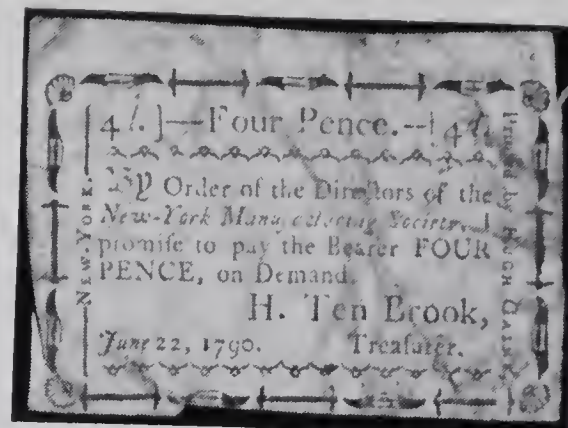 NEW-YORK.
[4d.]—Four Pence.—[4d.]
By Order of the Directors of the
New-York Manufacturing Society—I
promiſe to pay the Bearer FOUR
PENCE, on Demand.
H. Ten Brook,
June 22, 1790. Treaſurer.
Printed by HUGH GAINE